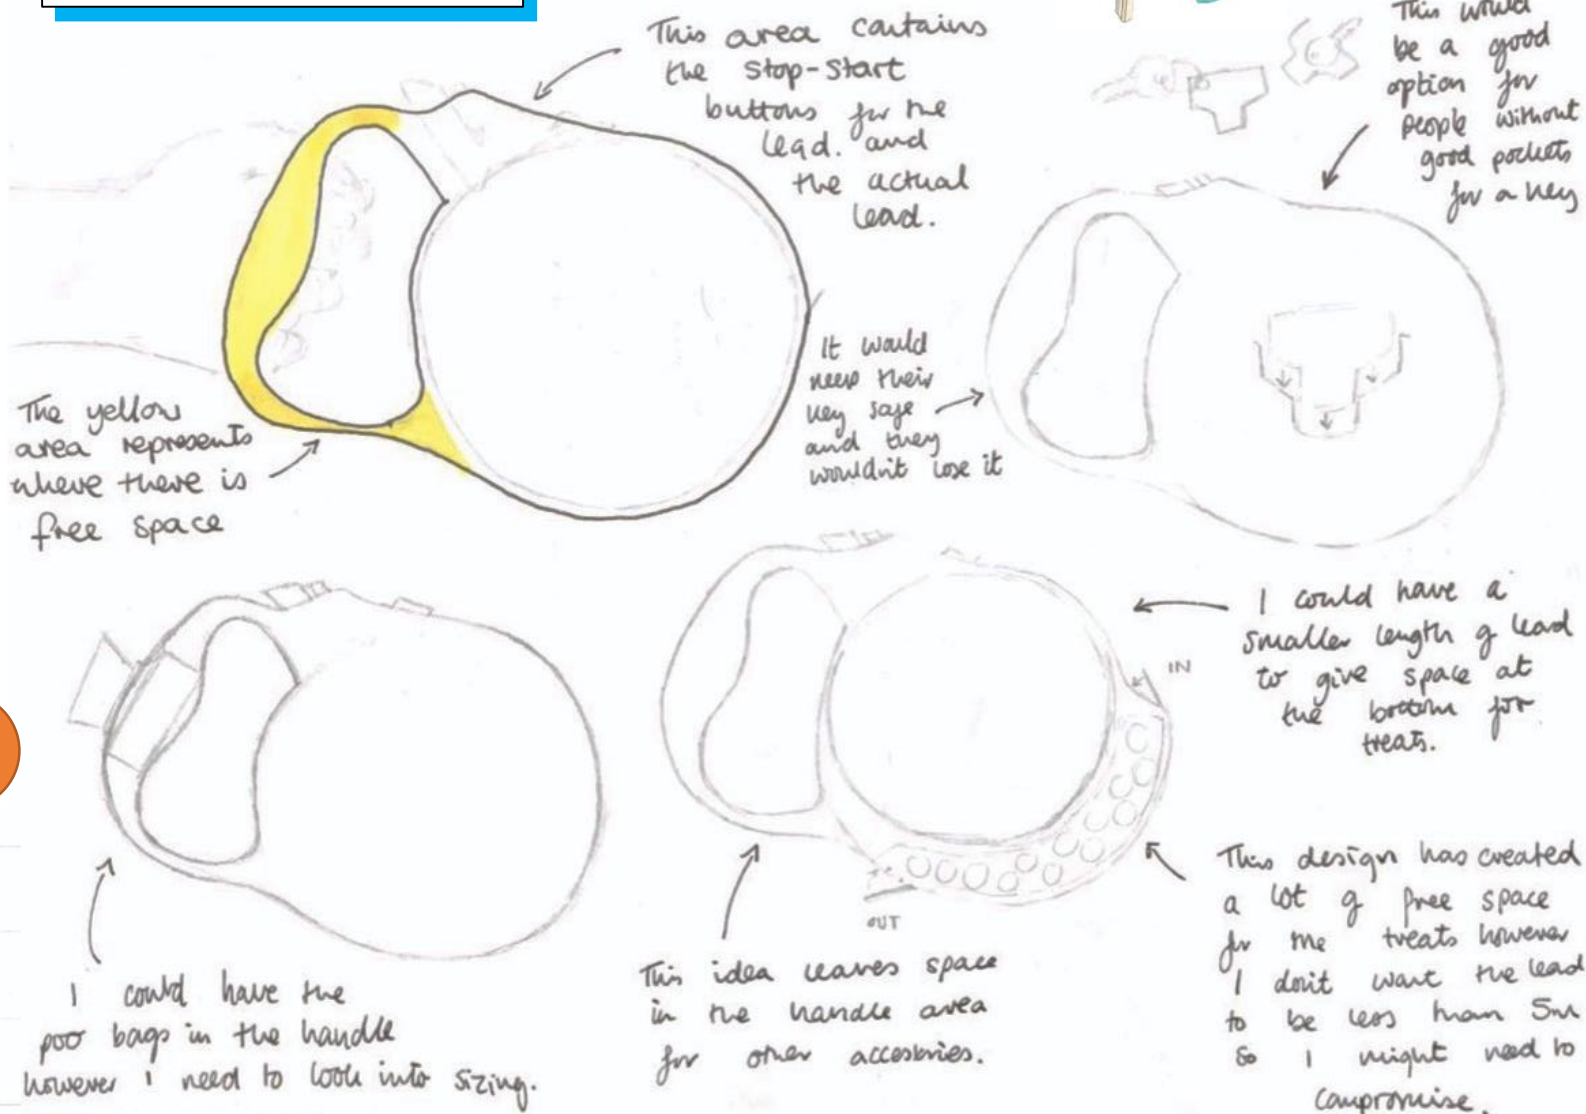 This area contains
the stop-start
buttons for the
lead. and
the actual
lead.
This would
be a good
option for
people without
good pockets
for a key
It would
keep their
key safe
and they
wouldn't lose it
The yellow
area represents
where there is
free space
I could have a
smaller length of lead
to give space at
the bottom for
treats.
IN
OUT
I could have the
poo bags in the handle
however I need to look into sizing.
This idea leaves space
in the handle area
for other accesories.
This design has created
a lot of free space
for the treats however
I don't want the lead
to be less than 5m
so I might need to
compromise.